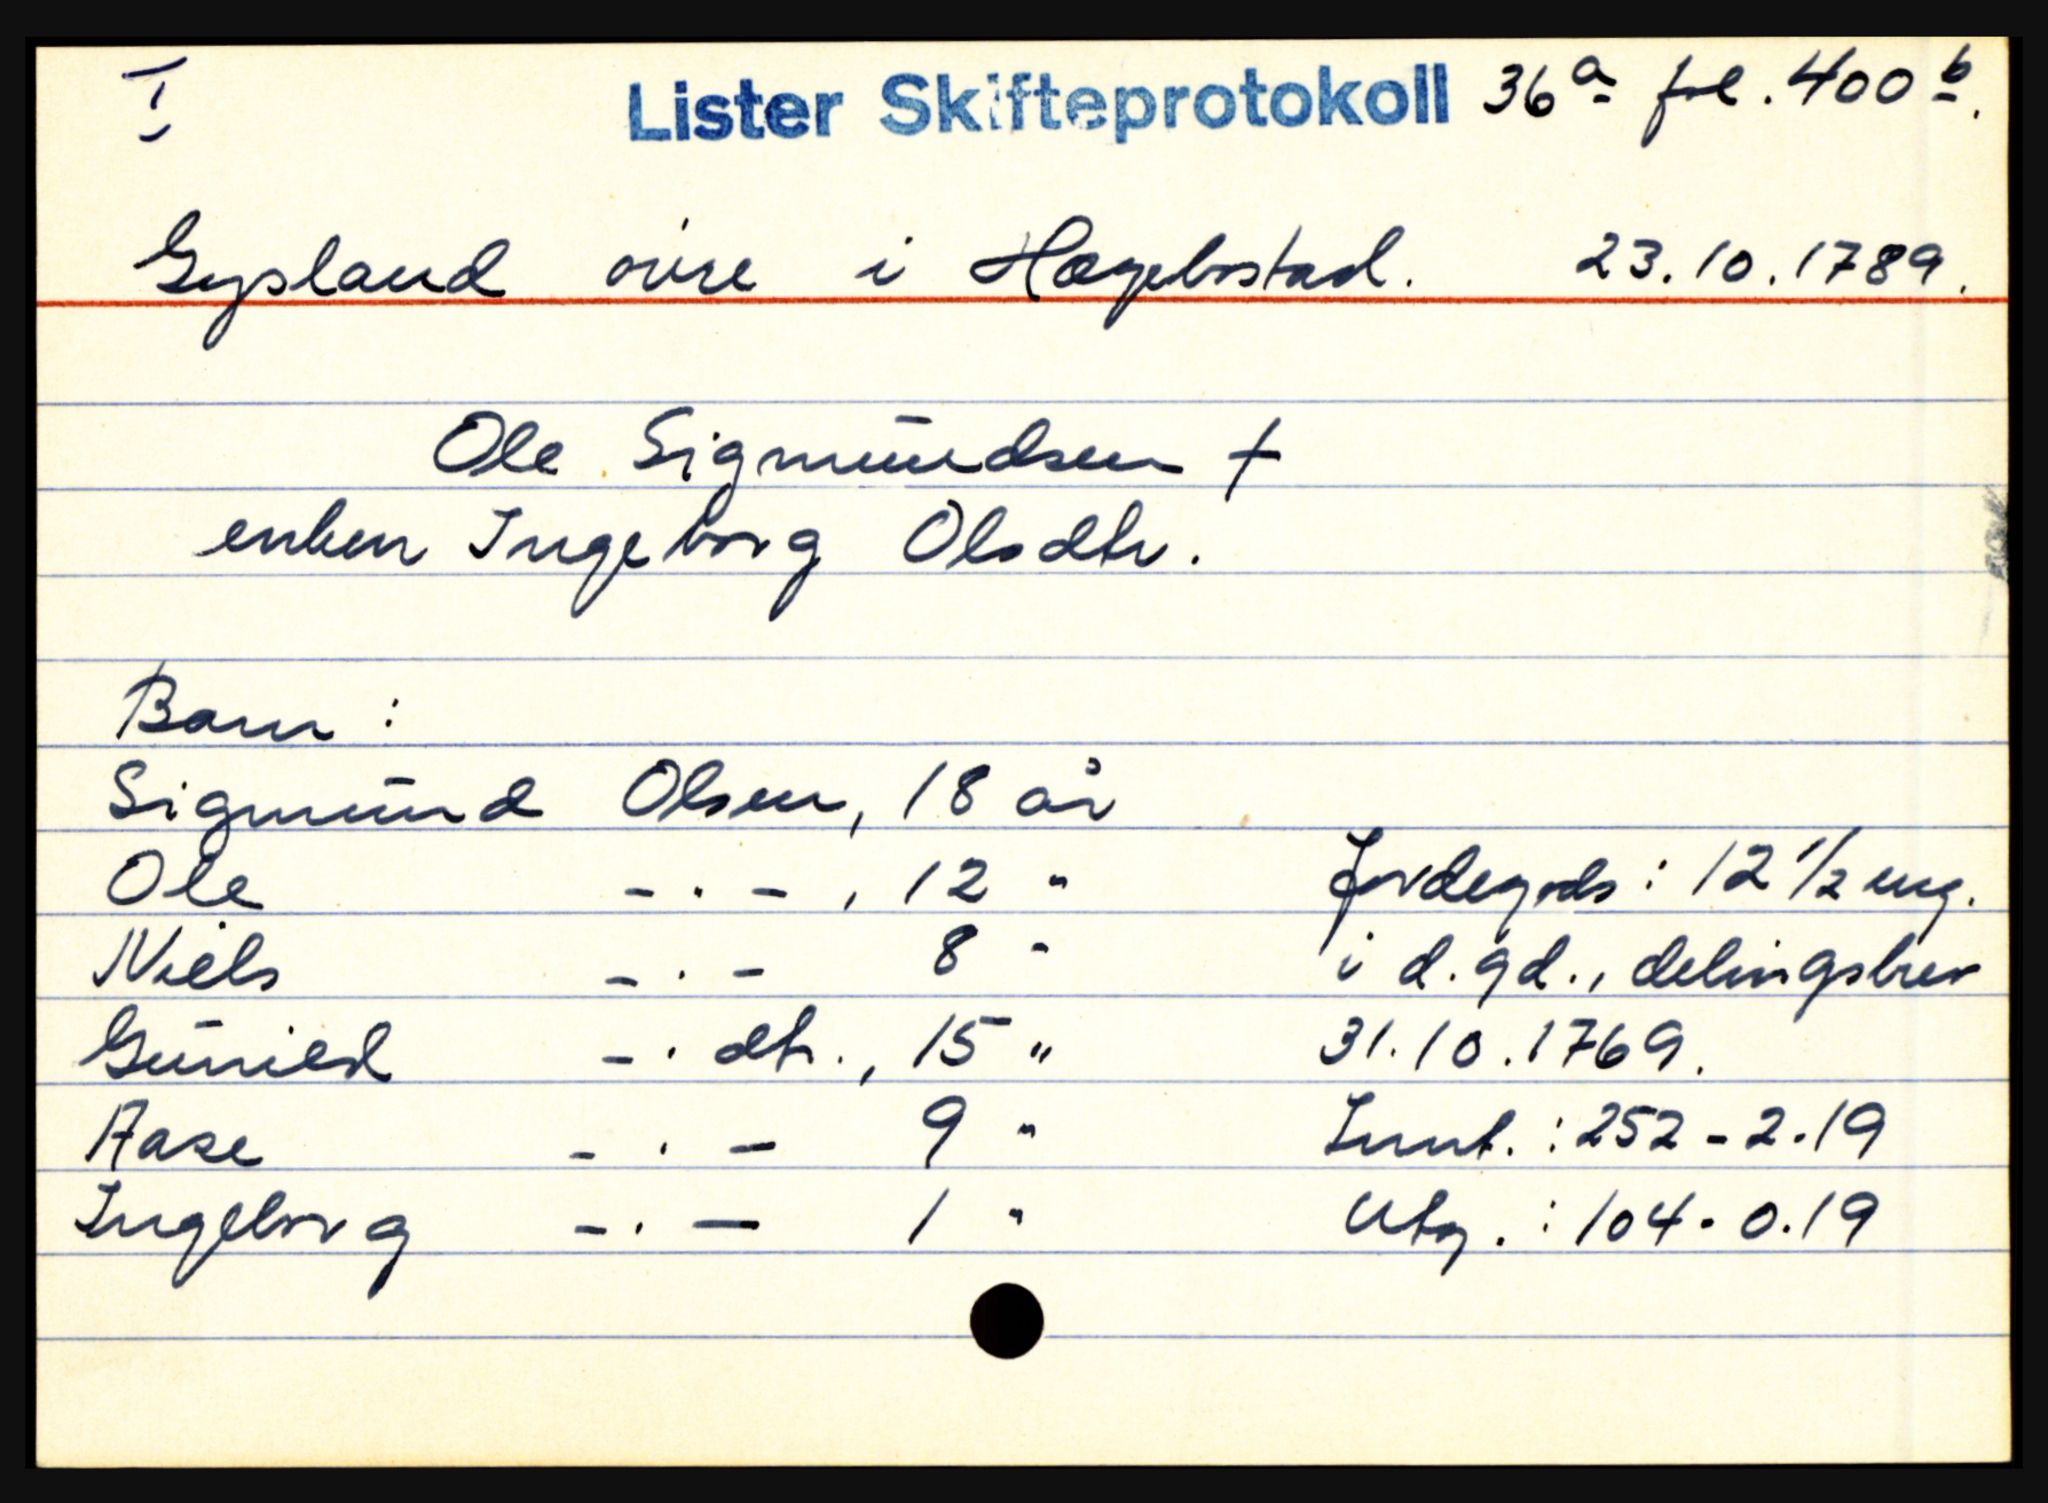 I
Lister Skifteprotokoll 36a fol. 400b.
Gysland øvre i Hægebostad. 23.10.1789.
Ole Sigmundsen †
enken Ingeborg Olsdtr.
Barn:
Sigmund Olsen, 18 år
Ole - . - , 12 " Jordegods: 12 1/2 eng.
Niels - . - 8 " i d. gd., delingsbrev
Gunild - . dtr., 15 " 31.10.1769.
Aase - . - 9 " Innt.: 252 - 2.19
Ingeborg - . - 1 " Utg.: 104 - 0.19